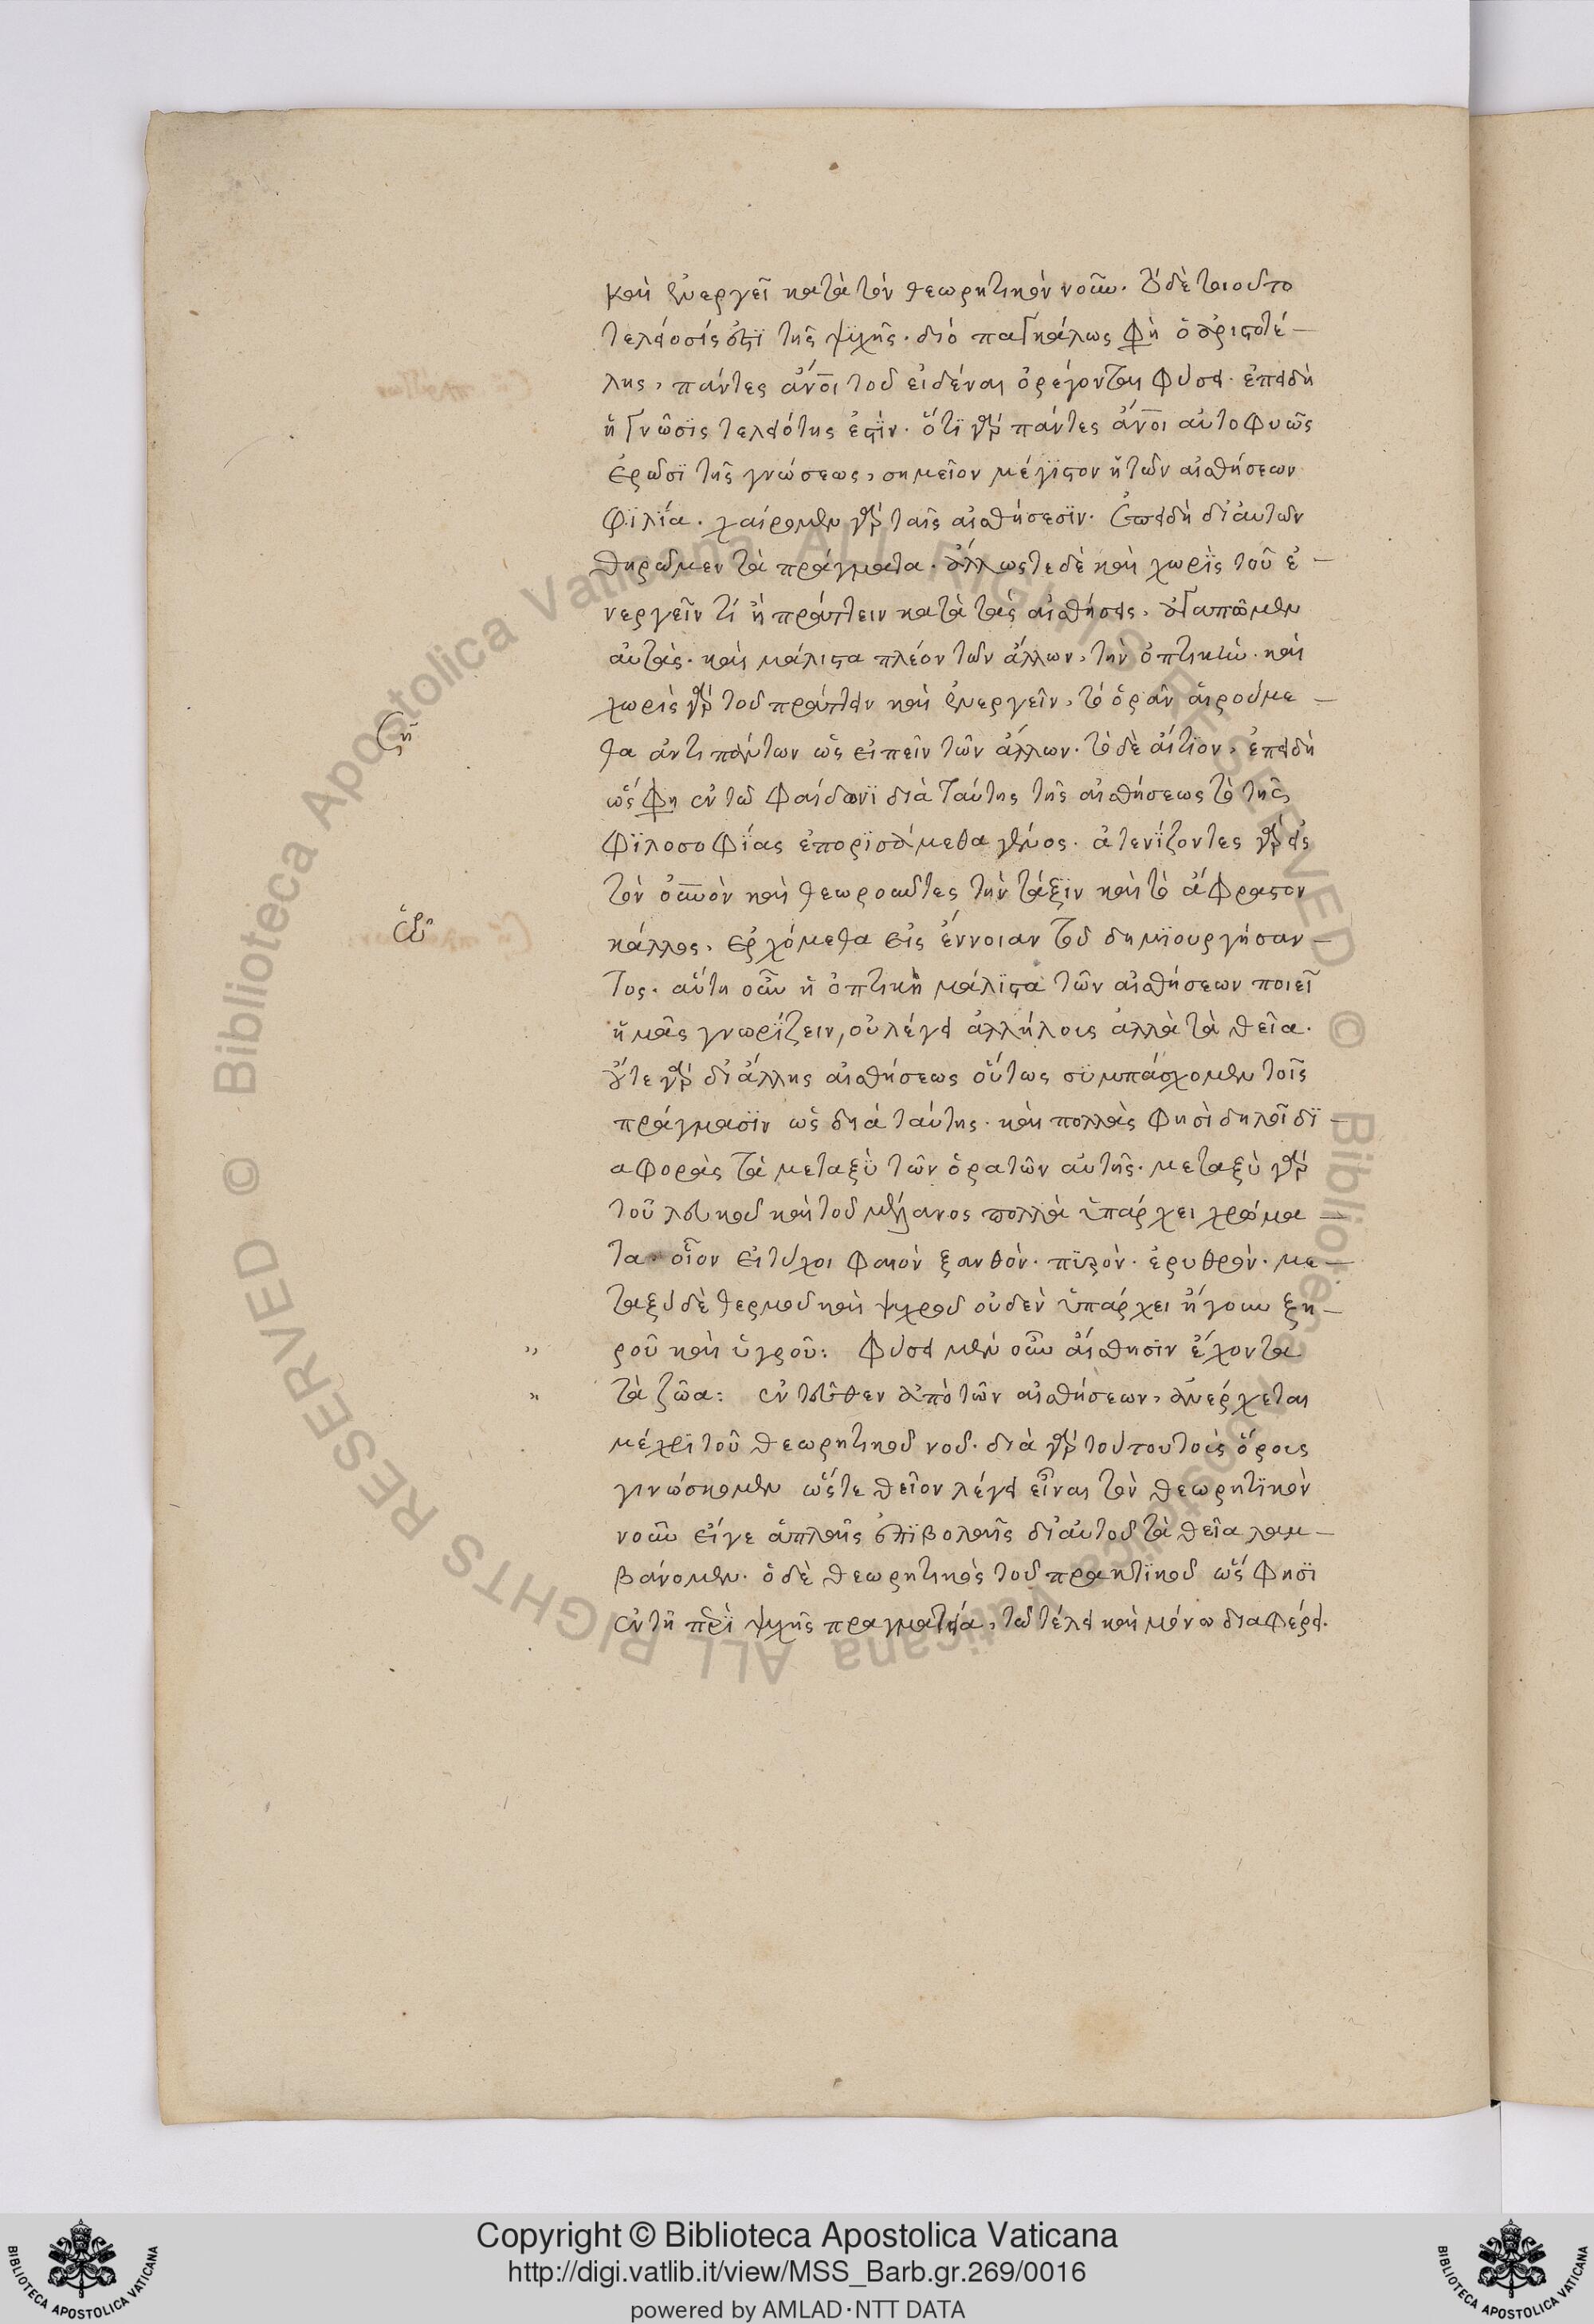 καὶ ἐνεργεῖ κατὰ τὸν θεωρητικὸν νοῦν. τὸ δὲ τοιοῦτο
τελείοσίς ἐστϊ τῆς ψϋχῆς. διὸ παγκάλως φη ὁ ἀριστοτέ-
λης, πάντες ἄνοι τοῦ εἰδέναι ὀρέγονται φύσει. ἐπειδὴ
ἡ γνῶσϊς τελειότης ἐστὶν. ὅτϊ γὰρ πάντες ἄνοι αὐτοφυῶς
ἐρῶσϊ τῆς γνώσεως, σημεῖον μέγϊστον ἡ τῶν αἰσθήσεων
φϊλϊα. χαίρομεν γὰρ ταῖς αἰσθήσεσϊν. ἐπειδὴ δι' αὐτῶν
θηρῶμεν τὰ πράγματα. ἄλλως τε δὲ καὶ χωρὶς τοῦ ἐ-
νεργεῖν τί ἢ πράττειν κατὰ τὰς αἰσθήσεις, ἀγαπῶμεν
αὐτὰς. καὶ μάλιστα πλέον τῶν ἄλλων, τὴν ὀπτικὴν. καὶ
χωρὶς γὰρ τοῦ πράττειν καὶ ἐνεργεῖν, τὸ ὁρᾶν αἱρούμε-
θα ἀντι πάντων ὡς εἰπεῖν τῶν ἄλλων. τὸ δὲ αἴτϊον, ἐπειδὴ
ὥς φη ἐν τῶ Φαίδωνϊ διὰ ταύτης τῆς αἰσθήσεως τὸ τῆς
φϊλοσοφϊας ἐπορϊσάμεθα γένος. ἀτενϊζοντες γὰρ εἰς
Ση
τὸν οὐνον καὶ θεωροῦντες τὴν τάξϊν καὶ τὸ ἄφραστον
κάλλος, ἐρχόμεθα εἰς ἔννοιαν τοῦ δημϊουργήσαν-
τος. αὕτη οὖν ἡ ὀπτικὴ μάλϊστα τῶν αἰσθήσεων ποιεῖ
ἡμᾶς γνωρϊζειν, οὐ λέγει ἀλλήλοις ἀλλὰ τὰ θεῖα.
οὔτε γὰρ δι' ἄλλης αἰσθήσεως οὕτως σϋμπάσχομεν τοῖς
πράγμασϊν ὡς διὰ ταύτης. καὶ πολλὰς φησὶ δηλοῖ δϊ-
αφορὰς τὰ μεταξὺ τῶν ὁρατῶν αὐτῆς. μεταξὺ γὰρ
τοῦ λευκοῦ καὶ τοῦ μέλανος πολλὰ ὑπάρχει χρώμα-
τα. οἷον εἰ τύχοι φαιὸν ξανθὸν. πϋρὸν. ἐρυθρὸν. με-
ταξὺ δὲ θερμοῦ καὶ ψυχροῦ οὐδὲν ὑπάρχει ἤγουν ξη-
ροῦ καὶ ὑγροῦ: Φύσει μὲν οὖν αἴσθησϊν ἔχοντα
τὰ ζῶα: ἐντεῦθεν ἀπὸ τῶν αἰσθήσεων, ἀνέρχεται
μέχρϊ τοῦ θεωρητικοῦ νοῦ. διὰ γὰρ τούτου τοὺς ὅρους
γινώσκομεν ὥστε θεῖον λέγει εἶναι τὸν θεωρητϊκὸν
νοῦν εἴγε ἁπλαῖς ἐπϊβολαῖς δι' αὐτοῦ τὰ θεῖα λαμ-
βάνομεν. ὁ δὲ θεωρητικὸς τοῦ πρακτϊκοῦ ὥς φησϊ
ἐν τῆ περὶ ψυχῆς πραγματεία, τῶ τέλει καὶ μόνω διαφέρει.
© Biblioteca Apostolica Vaticana ALL RIGHTS RESERVED
© Biblioteca Apostolica Vaticana ALL RIGHTS RESERVED
Copyright © Biblioteca Apostolica Vaticana
http://digi.vatlib.it/view/MSS_Barb.gr.269/0016
powered by AMLAD·NTT DATA
BIBLIOTECA APOSTOLICA VATICANA
BIBLIOTECA APOSTOLICA VATICANA